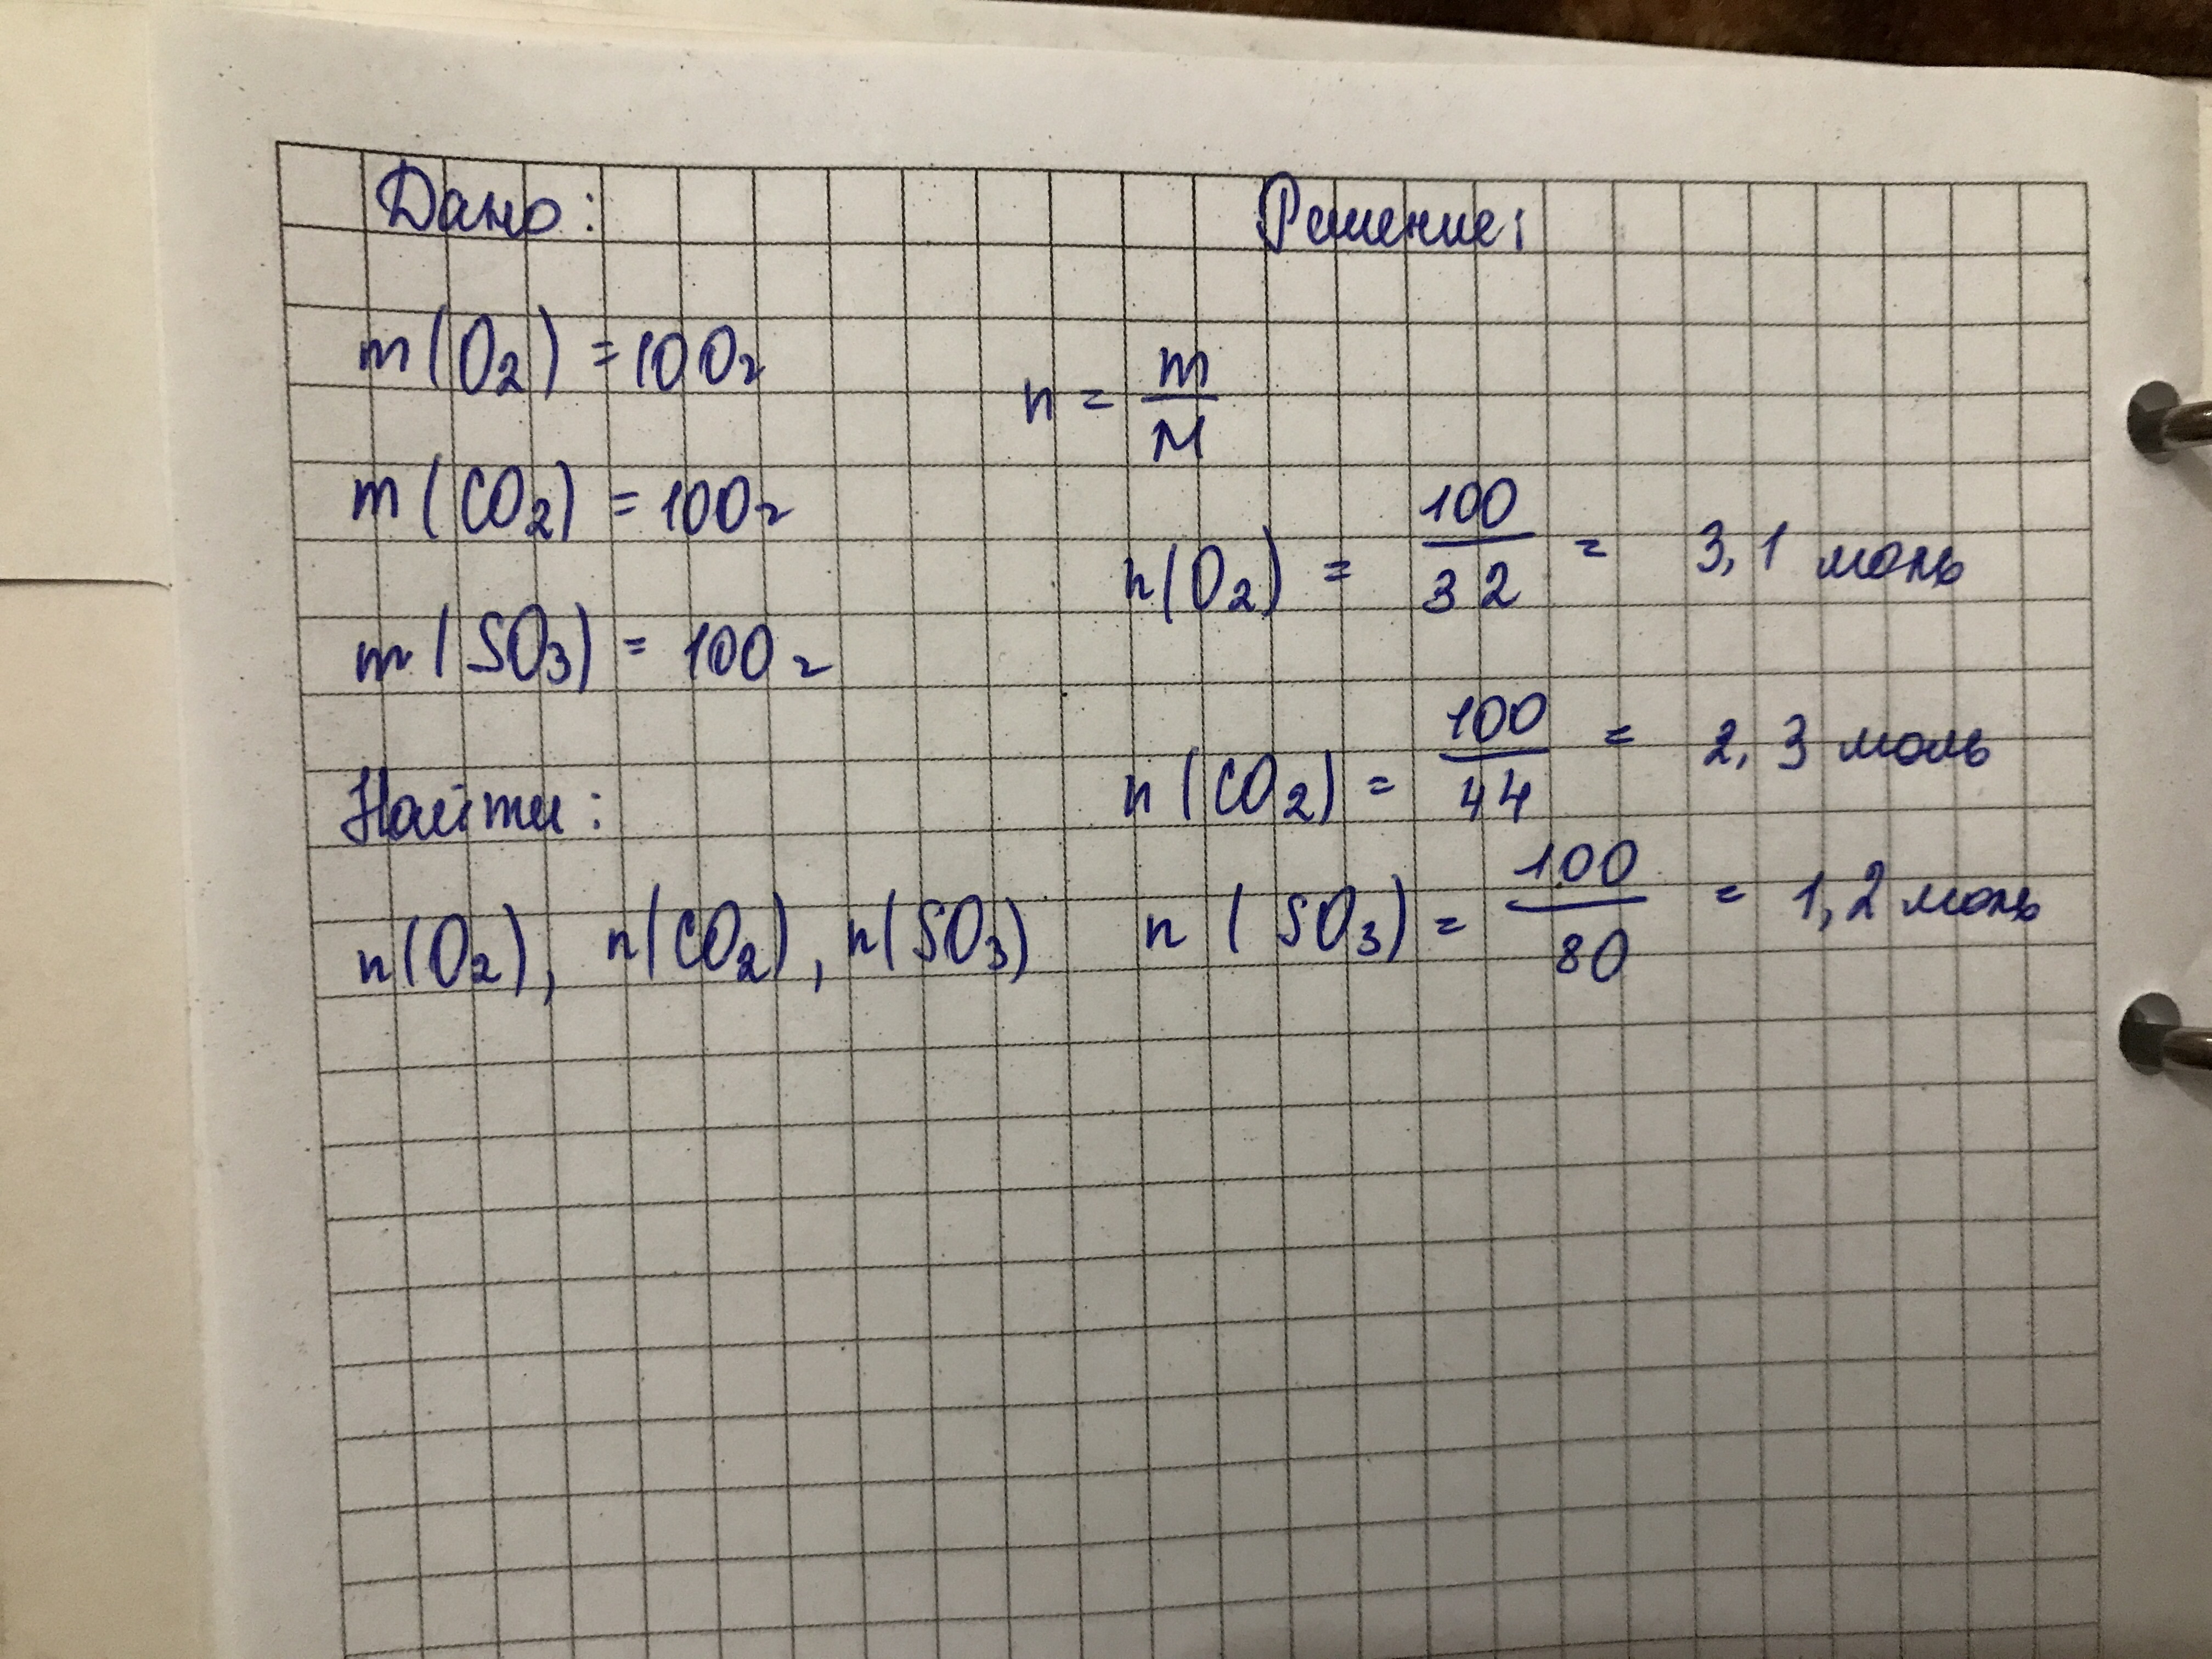 Дано:
m(O₂) = 100г
m(CO₂) = 100г
m(SO₃) = 100г
Найти:
n(O₂), n(CO₂), n(SO₃)
Решение:
n = m/M
n(O₂) = 100/32 = 3,1 моль
n(CO₂) = 100/44 = 2,3 моль
n(SO₃) = 100/80 = 1,2 моль